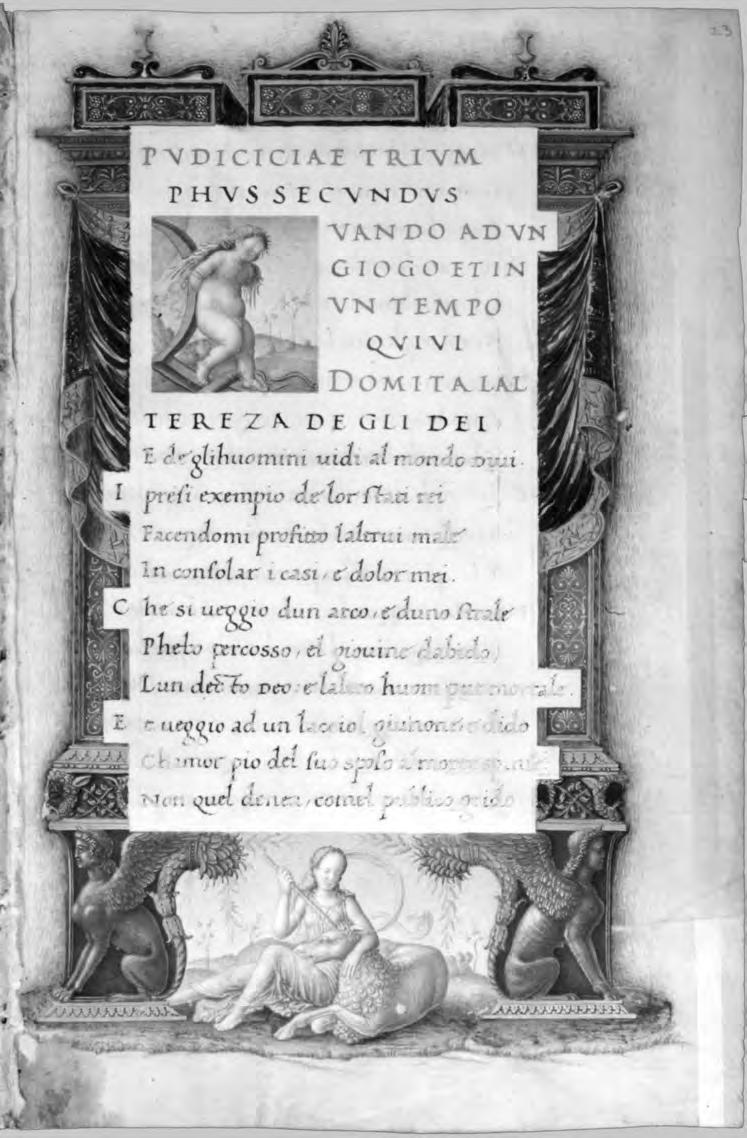 23
PVDICICIAE TRIVM
PHVS SECVNDVS
VANDO AD VN
GIOGO ET IN
VN TEMPO
QVIVI
DOMITA LAL
TEREZA DE GLI DEI
E de glihuomini uidi al mondo diui.
I presi exempio de lor stati rei
Facendomi profitto laltrui male
In consolar i casi, e dolor mei.
C he si ueggio dun arco, e duno strale
Phebo percosso, el giouine dabido,
Lun decto Deo, e laltro huom pur mortale.
E t ueggio ad un lacciol giunone e dido
Chamor pio del suo sposo a morte spinse
Non quel denea, comel publico grido